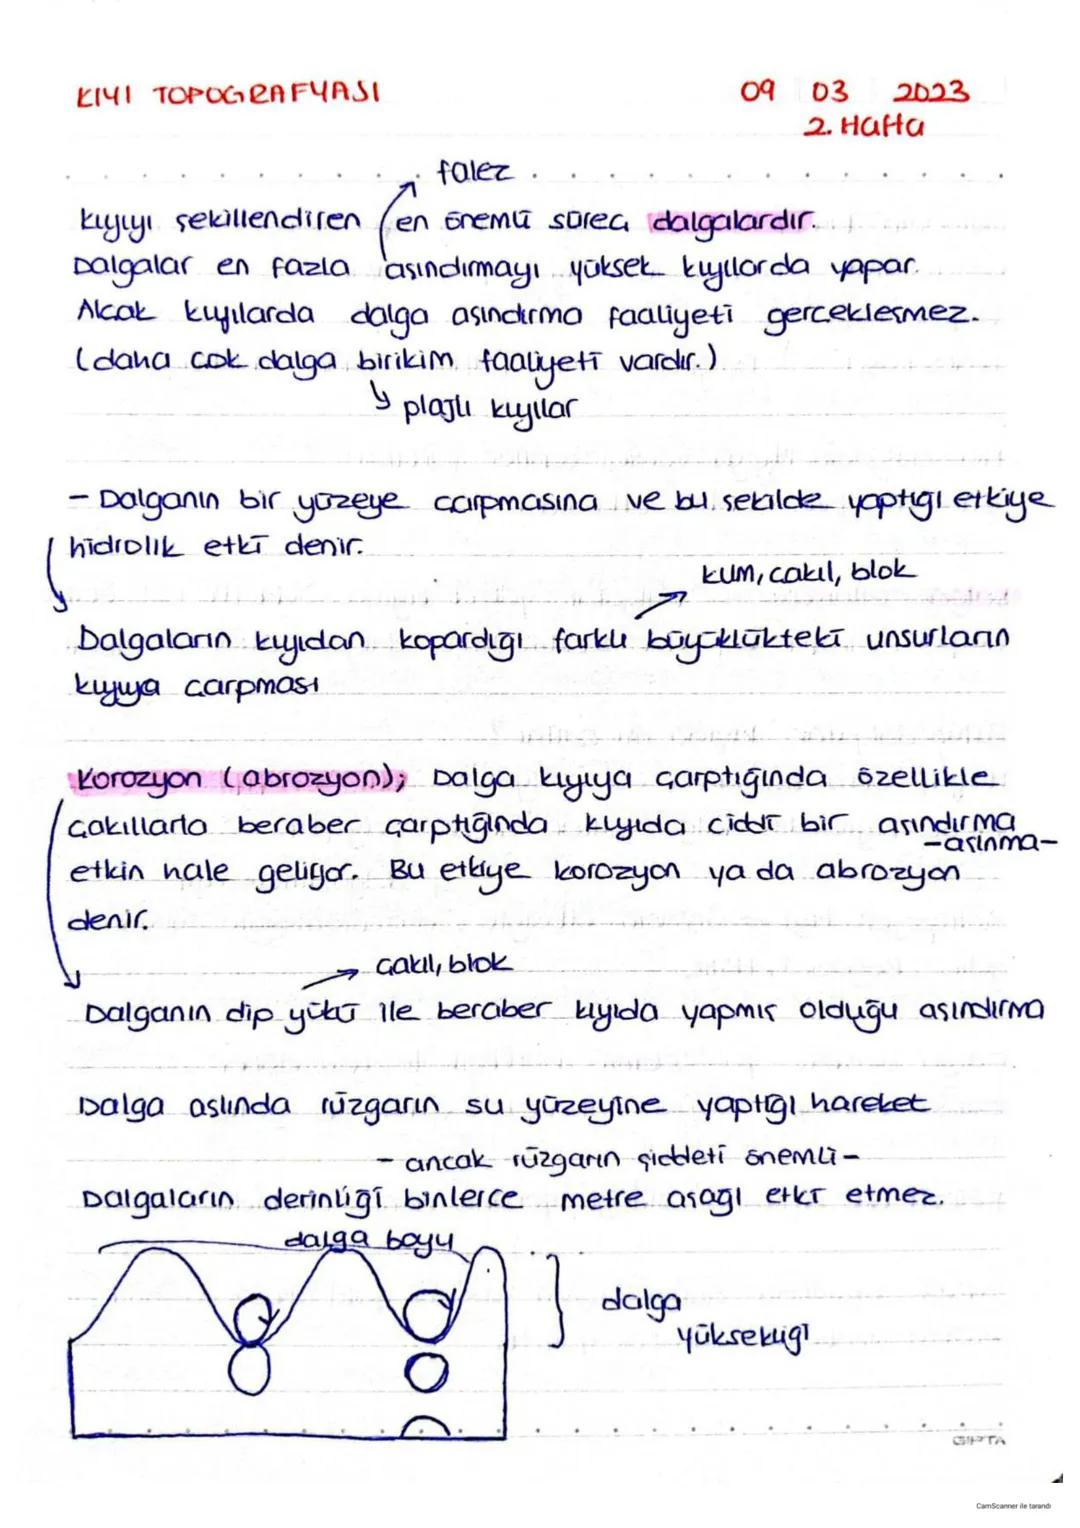 KIYI TOPOGRAFYASI
09 03 2023
2. Hafta
falez
kıyıyı şekillendiren en önemli süreç dalgalardır.
Dalgalar en fazla aşındırmayı yüksek kıyılarda yapar.
Alçak kıyılarda dalga aşındırma faaliyeti gerçekleşmez.
(daha çok dalga birikim faaliyeti vardır.)
plajlı kıyılar
- Dalganın bir yüzeye çarpmasına ve bu şekilde yaptığı etkiye
hidrolik etki denir.
kum, çakıl, blok
Dalgaların kıyıdan kopardığı farklı büyüklükteki unsurların
kıyıya çarpması
Korozyon (abrozyon); Dalga kıyıya çarptığında özellikle
çakıllarla beraber çarptığında kıyıda ciddi bir aşındırma
-aşınma-
etkin hale geliyor. Bu etkiye korozyon ya da abrozyon
denir.
çakıl, blok
Dalganın dip yükü ile beraber kıyıda yapmış olduğu aşındırma
Dalga aslında rüzgarın su yüzeyine yaptığı hareket
- ancak rüzgarın şiddeti önemli -
Dalgaların derinliği binlerce metre aşağı etki etmez.
dalga boyu
dalga
yüksekliği
GIPTA
CamScanner ile tarandı